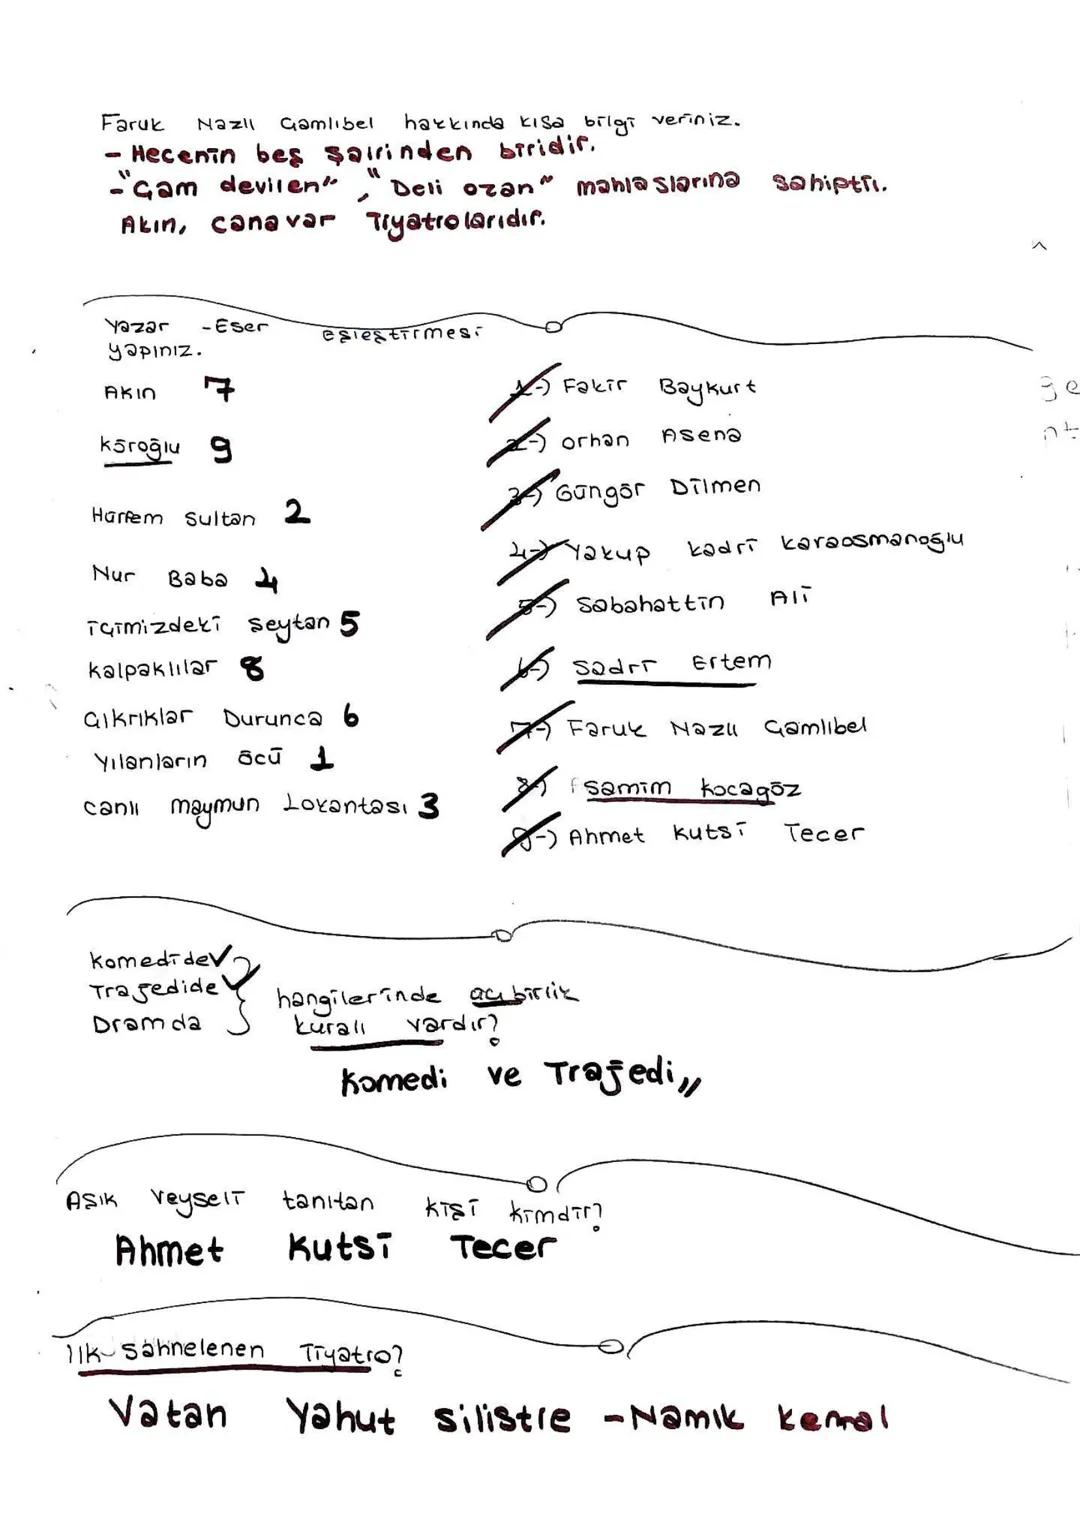 Faruk Nazlı Çamlıbel hakkında kısa bilgi veriniz.
- Hecenin beş şairinden biridir.
- "Çam deviren", "Deli ozan" mahlaslarına sahiptir.
Akın, canavar Tiyatrolarıdır.
Yazar - Eser eşleştirmesi
yapınız.
Akın 7
Köroğlu 9
Hürrem Sultan 2
Nur Baba 4
içimizdeki şeytan 5
Kalpaklılar 8
Çıkrıklar Durunca 6
Yılanların öcü 1
canlı maymun Lokantası 3
1-) Fakir Baykurt
2-) orhan Asena
3-) Güngör Dilmen
4-) Yakup kadri karaosmanoğlu
5-) Sabahattin Ali
6-) Sadri Ertem
7-) Faruk Nazlı Çamlıbel
8-) samim kocagöz
9-) Ahmet kutsi Tecer
Komedide ✓
Trajedide ✓
Dramda
hangilerinde üç birlik
kuralı vardır?
Komedi ve Trajedi,,
Aşık Veyseli tanıtan kişi kimdir?
Ahmet Kutsi Tecer
ilk sahnelenen Tiyatro?
Vatan Yahut silistre - Namık kemal